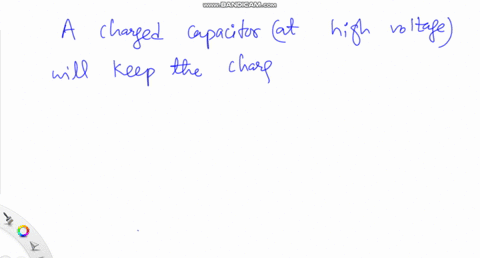 www.BANDICAM.com
A charged capacitor (at high voltage)
will keep the charg